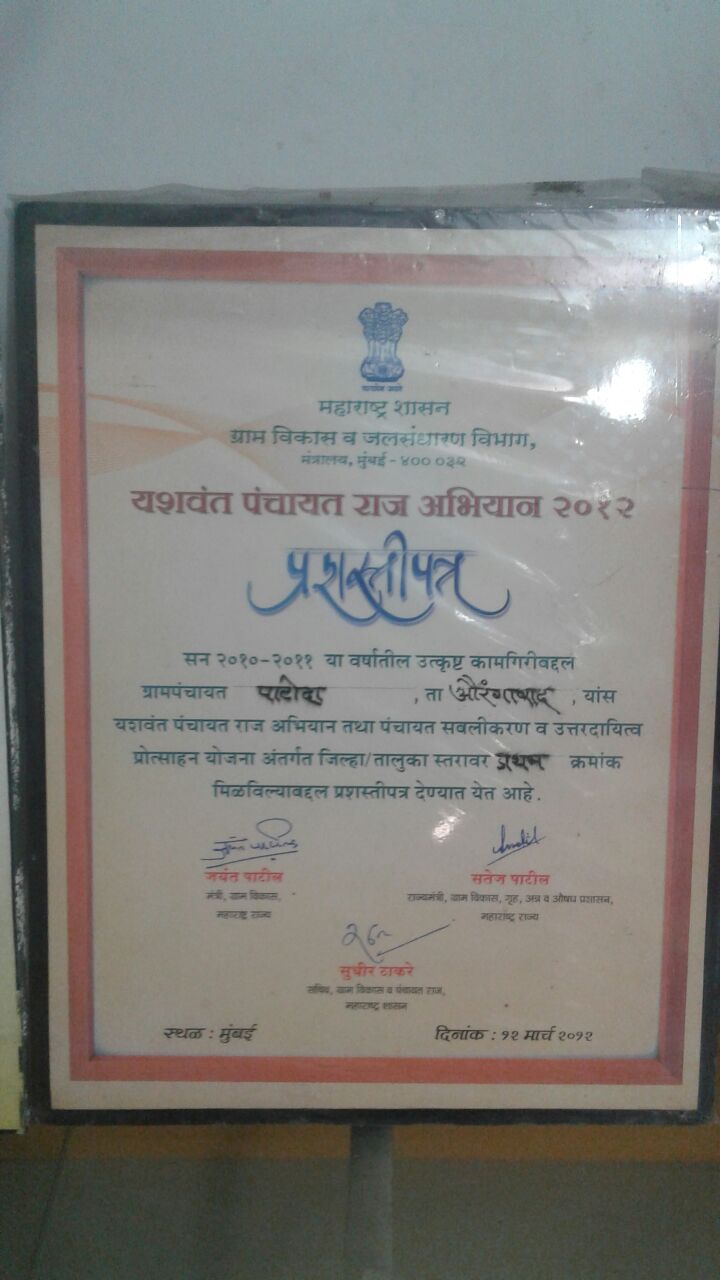 महाराष्ट्र शासन
ग्राम विकास व जलसंधारण विभाग,
मंत्रालय, मुंबई - ४०० ०३२
यशवंत पंचायत राज अभियान २०१२
प्रशस्तीपत्र
सन २०१०-२०११ या वर्षातील उत्कृष्ट कामगिरीबद्दल
ग्रामपंचायत पाटोदा , ता औरंगाबाद , यांस
यशवंत पंचायत राज अभियान तथा पंचायत सबलीकरण व उत्तरदायित्व
प्रोत्साहन योजना अंतर्गत जिल्हा/तालुका स्तरावर प्रथम क्रमांक
मिळविल्याबद्दल प्रशस्तीपत्र देण्यात येत आहे.
जयंत पाटील
मंत्री, ग्राम विकास,
महाराष्ट्र राज्य
सतेज पाटील
राज्यमंत्री, ग्राम विकास, गृह, अन्न व औषध प्रशासन,
महाराष्ट्र राज्य
सुधीर ठाकरे
सचिव, ग्राम विकास व पंचायत राज,
महाराष्ट्र शासन
स्थळ : मुंबई
दिनांक : १२ मार्च २०१२